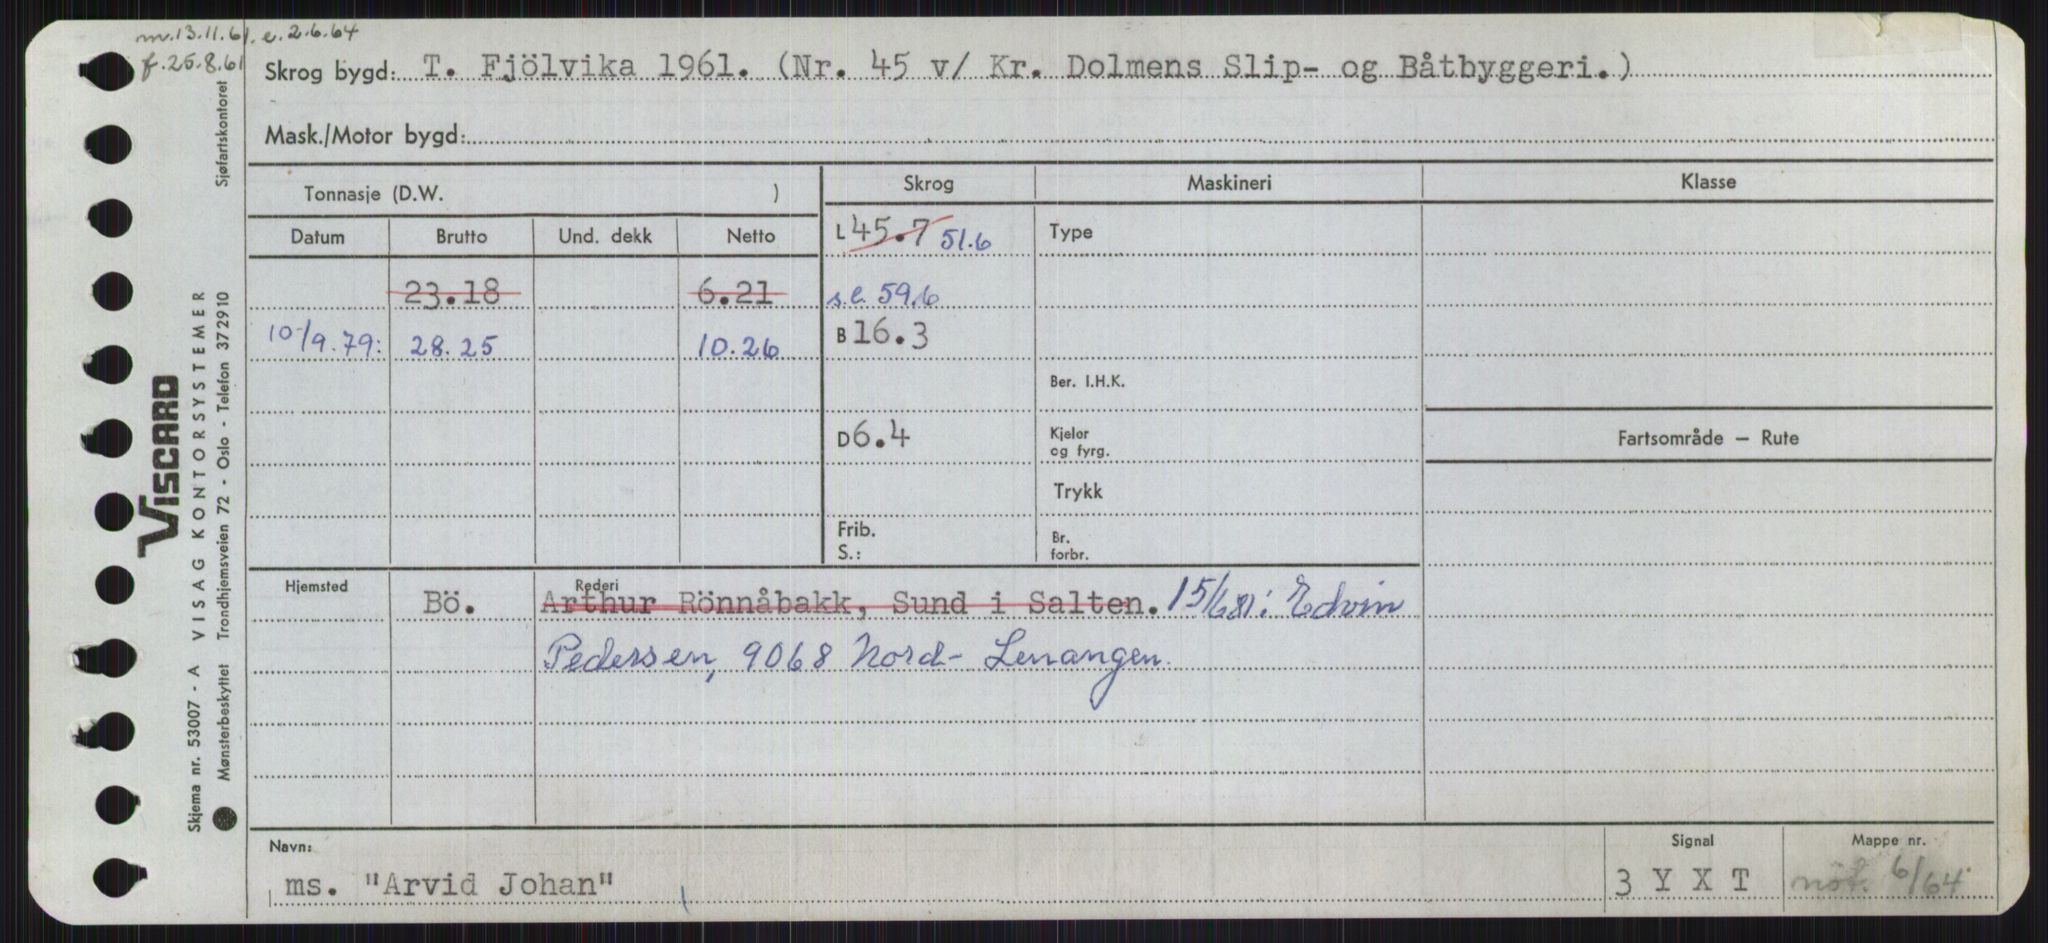 m.13.11.61. e. 2.6.64
f. 25.8.61
Skrog bygd: T. Fjölvika 1961. (Nr. 45 v/ Kr. Dolmens Slip- og Båtbyggeri.)
Mask./Motor bygd:
Tonnasje (D.W. )
Skrog Maskineri Klasse
Datum Brutto Und. dekk Netto
L 45.7 51.6 Type
23.18 6.21 s.l. 59.6
10/9.79: 28.25 10.26 B 16.3
Ber. I.H.K.
D 6.4 Kjeler og fyrg.
Fartsområde — Rute
Trykk
Frib.
S.:
Br. forbr.
Hjemsted Rederi
Bö. Arthur Rönnåbakk, Sund i Salten. 15/6 81: Edvin
Pedersen, 9068 Nord-Lenangen.
Navn: Signal Mappe nr.
ms. "Arvid Johan" 3 Y X T nöt. 6/64
VISCARD
Skjema nr. 53007 - A VISAG KONTORSYSTEMER
Mønsterbeskyttet Trondhjemsveien 72 - Oslo - Telefon 372910 Sjøfartskontoret